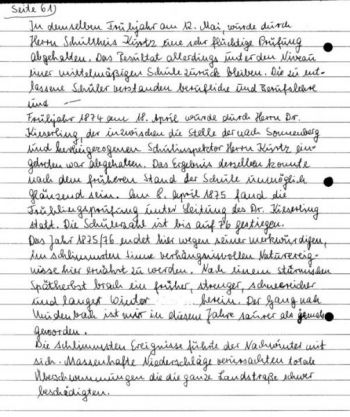 Seite 61)
In demselben Frühjahr am 12. Mai, wurde durch
Herrn Schultheis Kürtz eine sehr flüchtige Prüfung
abgehalten. Das Resultat allerdings unter dem Niveau
einer mittelmäßigen Schule zurück bleiben. Die zu ent-
lassene Schüler verstanden berufliche und Berufslehre
und —
Frühjahr 1874 am 18. April wurde durch Herrn Dr.
Kieserling, der inzwischen die Stelle der nach Sonneberg
und Schulinspektor Herrn Kürtz ein-
war abgehalten. Das Ergebnis derselben konnte
nach dem früheren Stand der Schule unmöglich
glänzend sein. Am 8. April 1875 fand die
Frühlingsprüfung unter Leitung des Dr. Kieserling
statt. Die Schulzahl ist bis auf 76 gestiegen.
Das Jahr 1875/76 endet hier wegen seiner merkwürdigen,
im schlimmsten Sinne verhängnisvollen Naturereig-
nisse hier erwähnt zu werden. Nach einem stürmischen
Spätherbst brach ein früher, strenger, schneereicher
und langer Winter .... herein. Der Gang nach
Mündenbach ist mir in diesem Jahre saurer als
geworden.
Die schlimmsten Ereignisse führte der Nachwinter mit
sich. Massenhafte Niederschläge verursachten totale
Überschwemmungen die die ganze Landstraße schwer
beschädigten.